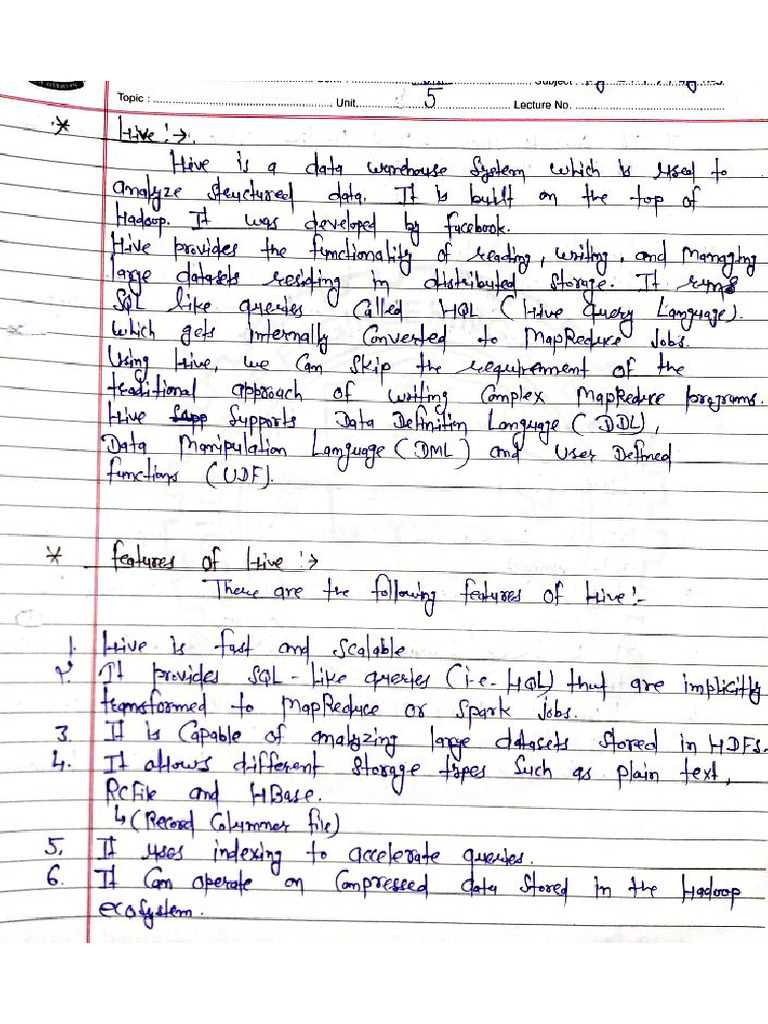 Topic : Unit 5 Lecture No.
* Hive :→
Hive is a data warehouse system which is used to
analyze structured data. It is built on the top of
Hadoop. It was developed by facebook.
Hive provides the functionality of reading, writing, and managing
large datasets residing in distributed storage. It runs
SQL like queries called HQL (Hive Query Language).
which gets internally converted to MapReduce Jobs.
Using Hive, we can skip the requirement of the
traditional approach of writing complex MapReduce programs.
Hive supports Data Definition Language (DDL),
Data Manipulation Language (DML) and User Defined
functions (UDF).
* features of Hive :→
There are the following features of Hive :-
1. Hive is fast and scalable.
2. It provides SQL-like queries (i.e. HQL) that are implicitly
transformed to MapReduce or Spark jobs.
3. It is capable of analyzing large datasets stored in HDFS.
4. It allows different storage types such as plain text,
RCFile and HBase.
↳ (Record Columner file)
5. It uses indexing to accelerate queries.
6. It can operate on compressed data stored in the Hadoop
ecosystem.